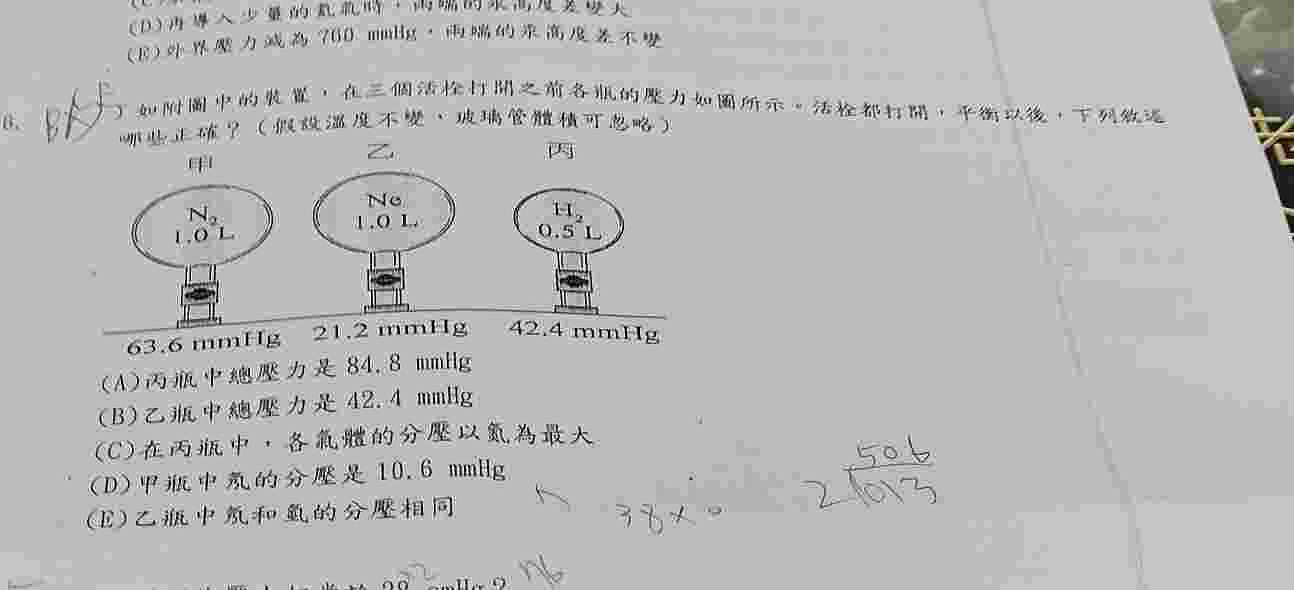 (D)再導入少量的氦氣時，兩端的汞高度差變大
(E)外界壓力減為 760 mmHg，兩端的汞高度差不變
如附圖中的裝置，在三個活栓打開之前各瓶的壓力如圖所示。活栓都打開，平衡以後，下列敘述
哪些正確？（假設溫度不變、玻璃管體積可忽略）
甲 乙 丙
N₂ Ne H₂
1.0 L 1.0 L 0.5 L
63.6 mmHg 21.2 mmHg 42.4 mmHg
(A)丙瓶中總壓力是 84.8 mmHg
(B)乙瓶中總壓力是 42.4 mmHg
(C)在丙瓶中，各氣體的分壓以氮為最大
(D)甲瓶中氖的分壓是 10.6 mmHg
(E)乙瓶中氖和氫的分壓相同
506
2 1013
38×0
76